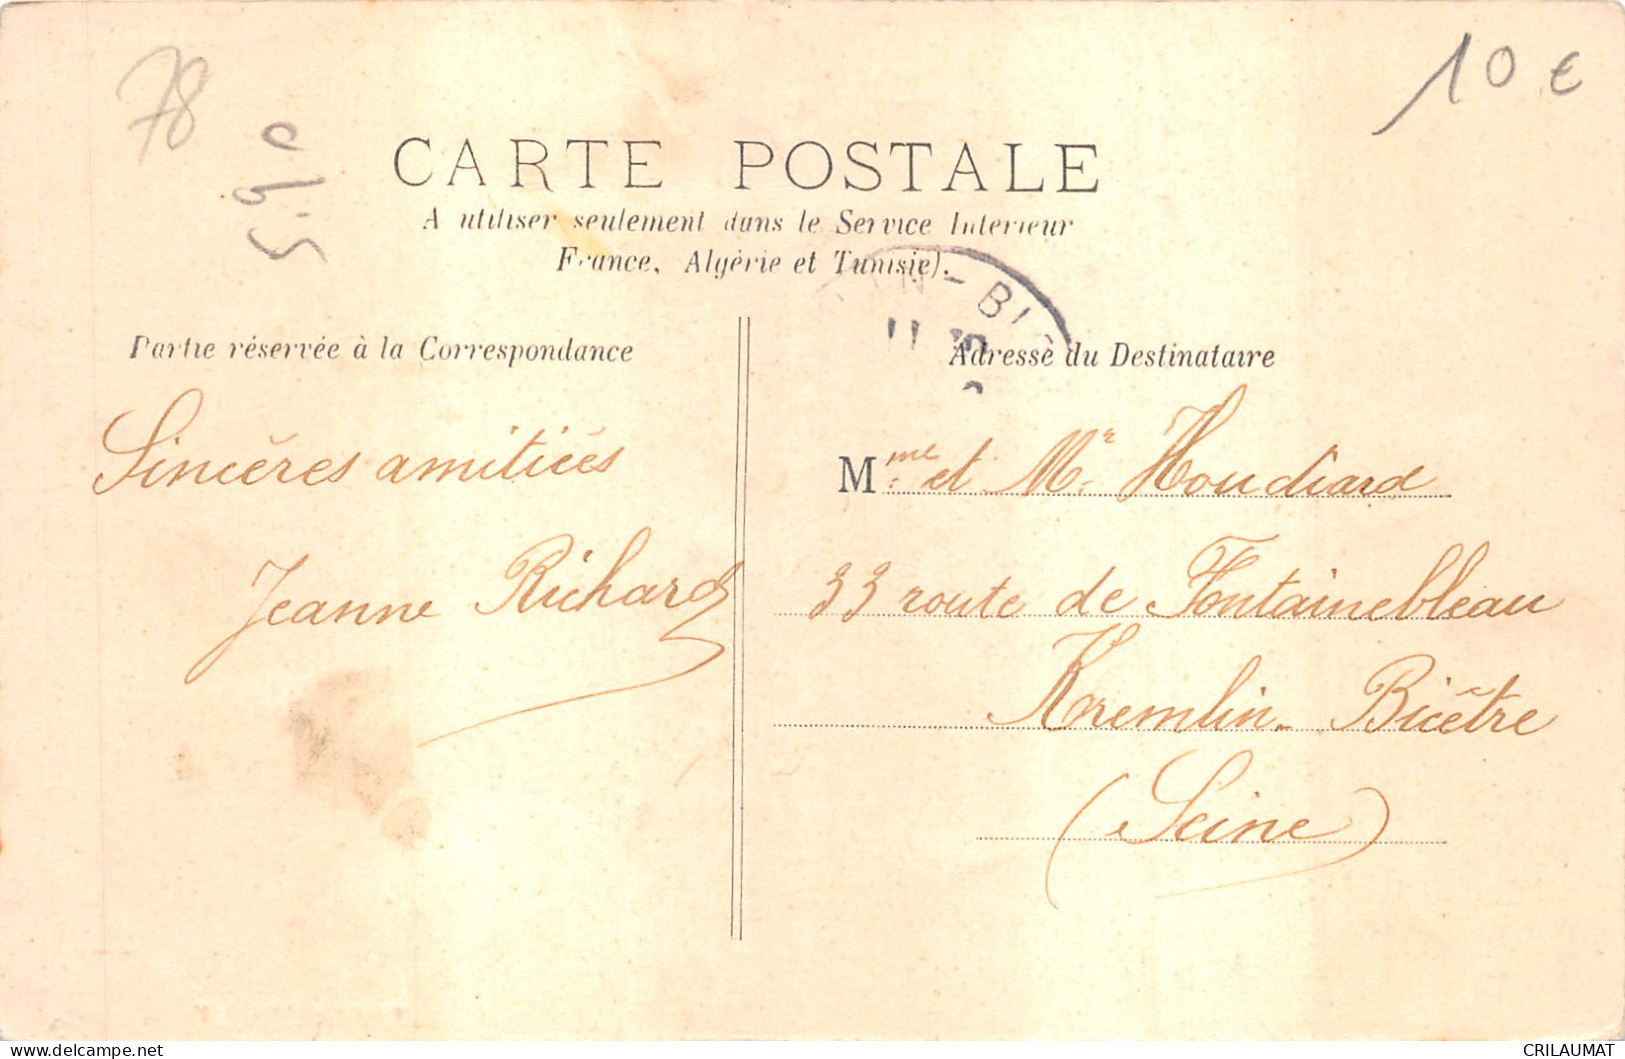 78
10 €
CARTE POSTALE
A utiliser seulement dans le Service Intérieur
France, Algérie et Tunisie).
Partie réservée à la Correspondance
Adresse du Destinataire
Sincères amitiées
Jeanne Richard
Mme et Mr Houdiard
33 route de Fontainebleau
Kremlin-Bicêtre
(Seine)
CRILAUMAT